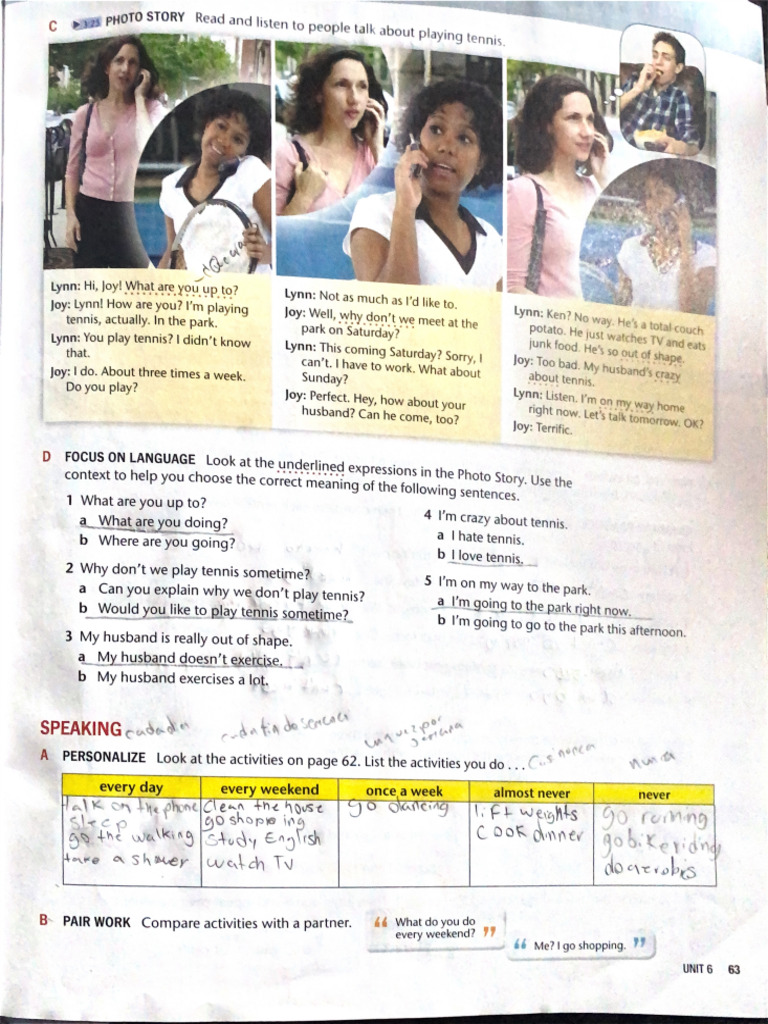 C ▶ 3:23 PHOTO STORY Read and listen to people talk about playing tennis.
Lynn: Hi, Joy! What are you up to?
Joy: Lynn! How are you? I'm playing
tennis, actually. In the park.
Lynn: You play tennis? I didn't know
that.
Joy: I do. About three times a week.
Do you play?
Lynn: Not as much as I'd like to.
Joy: Well, why don't we meet at the
park on Saturday?
Lynn: This coming Saturday? Sorry, I
can't. I have to work. What about
Sunday?
Joy: Perfect. Hey, how about your
husband? Can he come, too?
Lynn: Ken? No way. He's a total couch
potato. He just watches TV and eats
junk food. He's so out of shape.
Joy: Too bad. My husband's crazy
about tennis.
Lynn: Listen. I'm on my way home
right now. Let's talk tomorrow. OK?
Joy: Terrific.
D FOCUS ON LANGUAGE Look at the underlined expressions in the Photo Story. Use the
context to help you choose the correct meaning of the following sentences.
1 What are you up to?
a What are you doing?
b Where are you going?
2 Why don't we play tennis sometime?
a Can you explain why we don't play tennis?
b Would you like to play tennis sometime?
3 My husband is really out of shape.
a My husband doesn't exercise.
b My husband exercises a lot.
4 I'm crazy about tennis.
a I hate tennis.
b I love tennis.
5 I'm on my way to the park.
a I'm going to the park right now.
b I'm going to go to the park this afternoon.
SPEAKING
cada dia
una vez por
nunca
A PERSONALIZE Look at the activities on page 62. List the activities you do . . .
every day every weekend once a week almost never never
talk on the phone clean the house go dancing lift weights go running
sleep go shopping cook dinner go bike riding
go the walking study English do aerobis
take a shower watch TV
B PAIR WORK Compare activities with a partner.
“ What do you do
every weekend? ”
“ Me? I go shopping. ”
UNIT 6 63